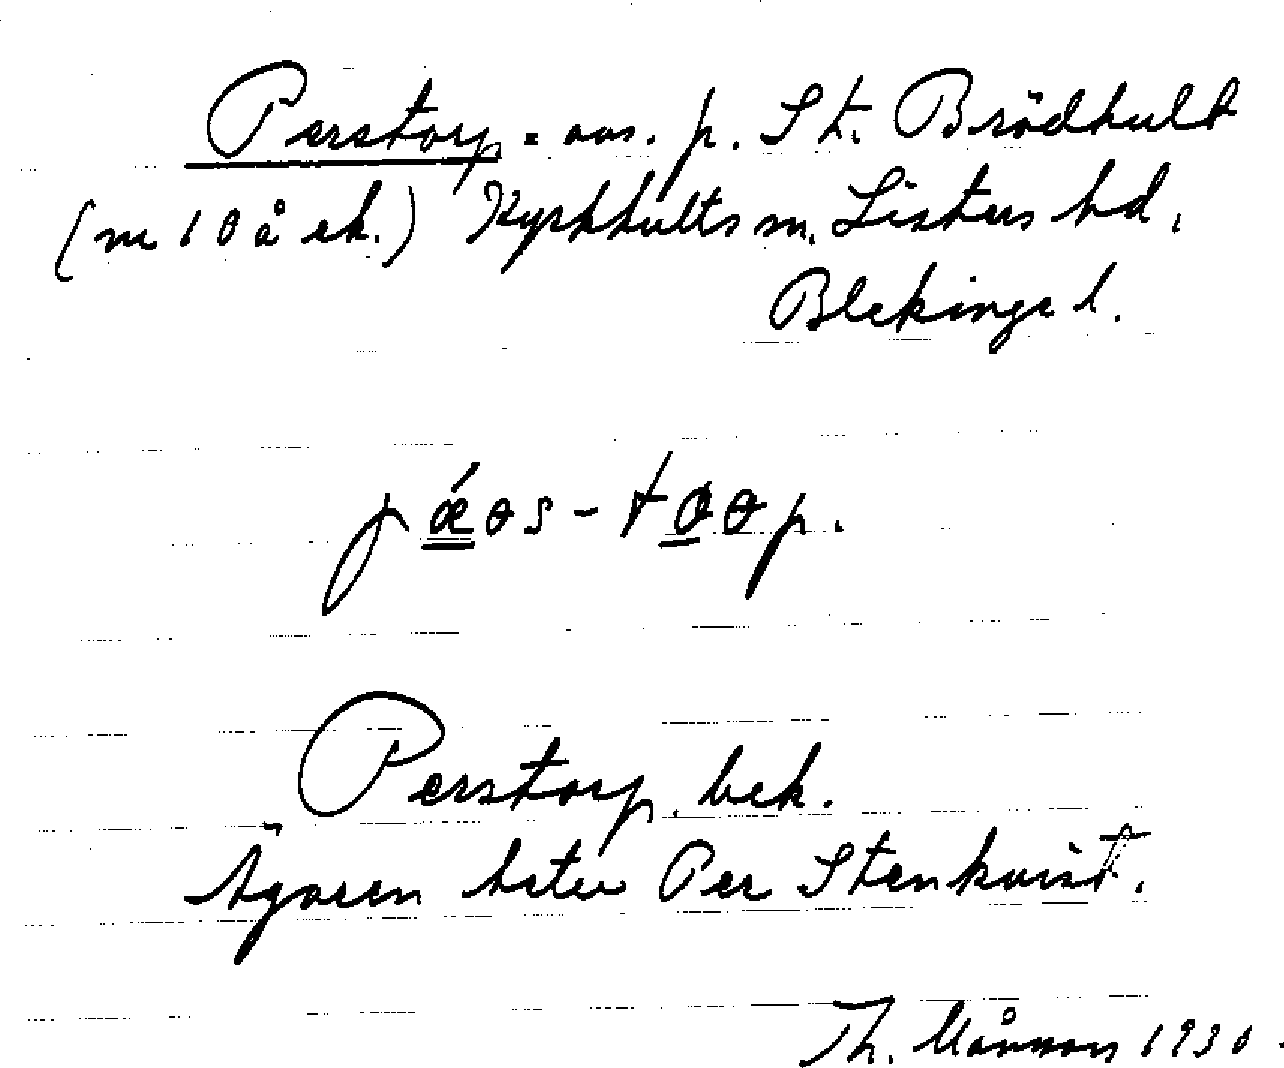 Perstorp = avs. p. St. Brödhult
(m 10 å ek.) Kyrkhults sn. Listers hd.
Blekinge l.
pǽɵs-tɵɵp.
Perstorp. bek.
Ägaren heter Per Stenkvist.
Th. Månsson 1930.